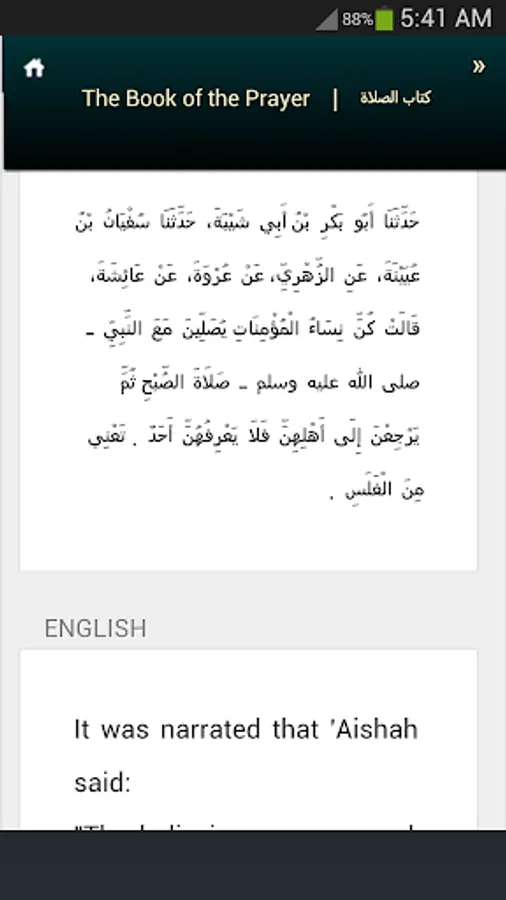 88% 5:41 AM
»
The Book of the Prayer | كتاب الصلاة
حَدَّثَنَا أَبُو بَكْرِ بْنُ أَبِي شَيْبَةَ، حَدَّثَنَا سُفْيَانُ بْنُ
عُيَيْنَةَ، عَنِ الزُّهْرِيِّ، عَنْ عُرْوَةَ، عَنْ عَائِشَةَ،
قَالَتْ كُنَّ نِسَاءُ الْمُؤْمِنَاتِ يُصَلِّينَ مَعَ النَّبِيِّ ـ
صلى الله عليه وسلم ـ صَلاَةَ الصُّبْحِ ثُمَّ
يَرْجِعْنَ إِلَى أَهْلِهِنَّ فَلَا يَعْرِفُهُنَّ أَحَدٌ . تَعْنِي
مِنَ الْغَلَسِ .
ENGLISH
It was narrated that 'Aishah
said: